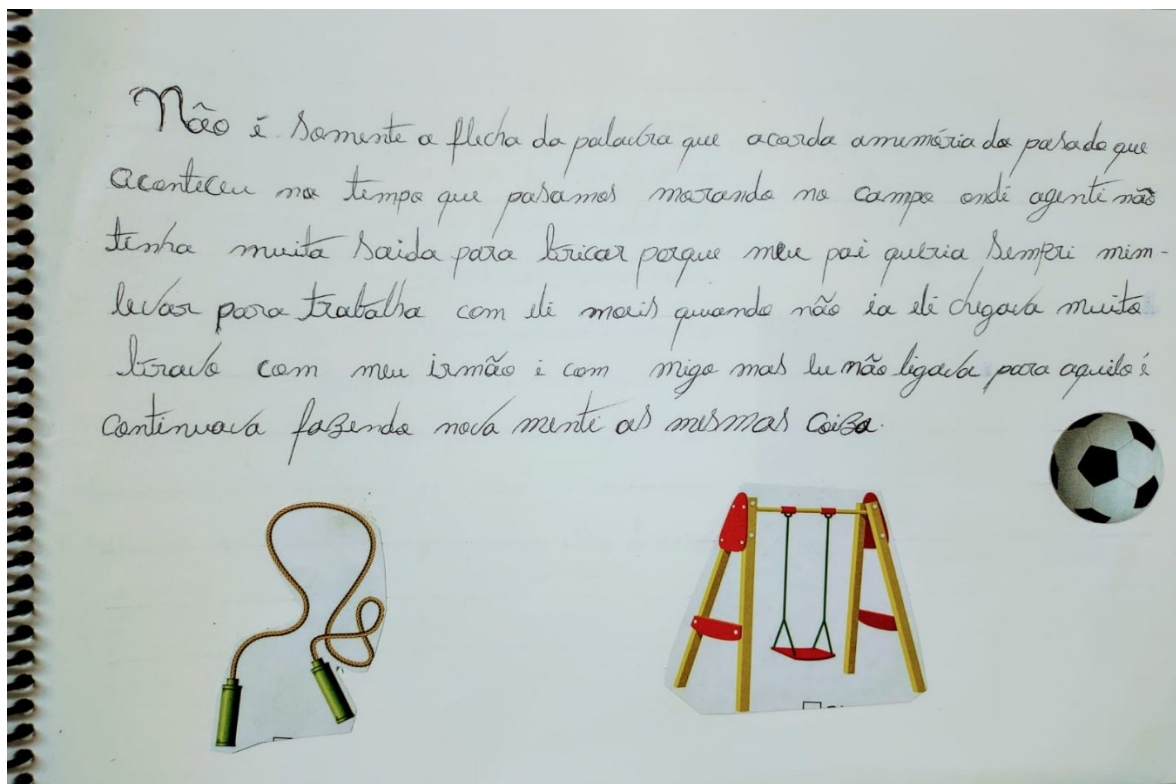 Não é somente a flecha da palavra que acorda amemória do pasado que
aconteceu no tempo que pasamos morando no campo onde agente não
tenha muita saida para bricar porque meu pai queria sempri mim-
levar para trabalha com eli mais quando não ia eli chegava muito
bravo com meu irmão i com migo mas eu não ligava para aquilo é
continuava fazendo nova menti as mesmas coiza.